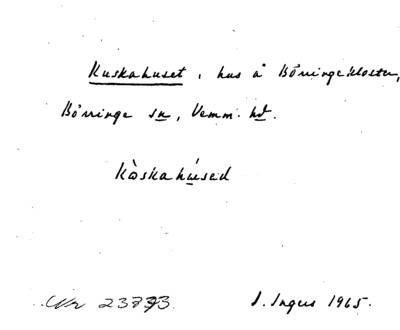 Kuskahuset, hus å Börringekloster,
Börringe sn, Vemm. hd.
Kòskahúsed
Nr
S. Ingers 1965.